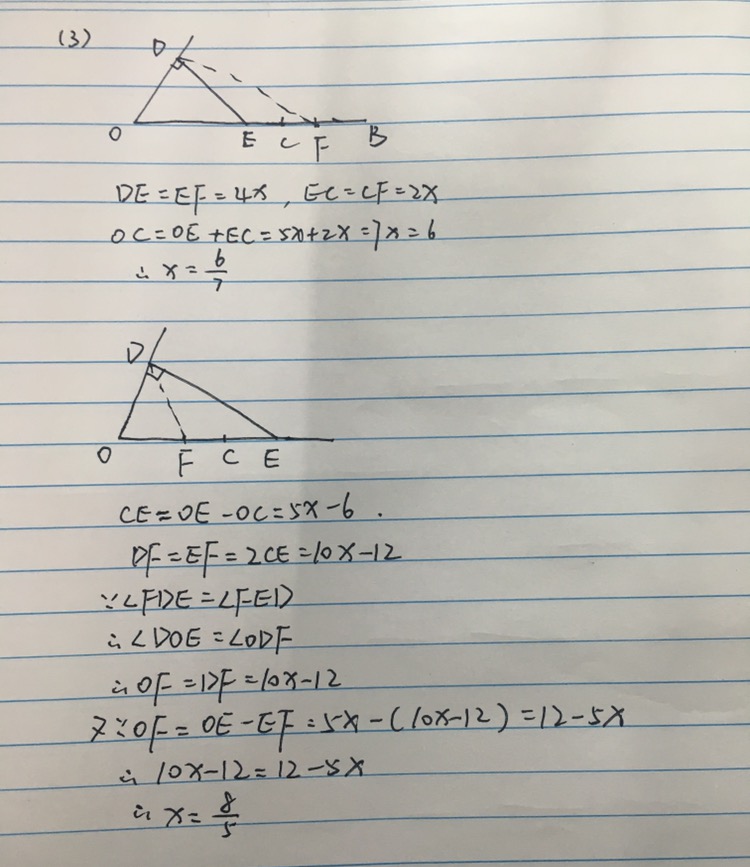 (3)
D
O E C F B
DE=EF=4x, EC=CF=2x
OC=OE+EC=5x+2x=7x=6
∴ x=6/7
D
O F C E
CE=OE-OC=5x-6.
DF=EF=2CE=10x-12
∵∠FDE=∠FED
∴∠DOE=∠ODF
∴OF=DF=10x-12
又∵OF=OE-EF=5x-(10x-12)=12-5x
∴10x-12=12-5x
∴x=8/5